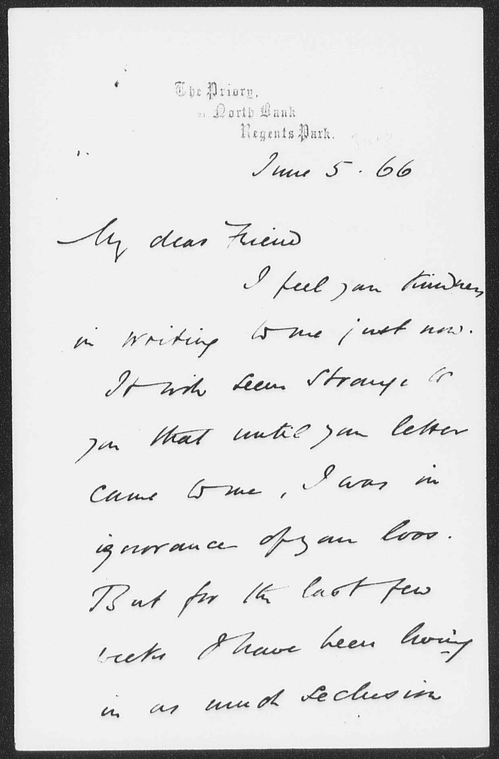 The Priory,
North Bank
Regents Park.
June 5. 66
My dear Friend
I feel your kindness
in writing to me just now.
It will seem strange to
you that until your letter
came to me, I was in
ignorance of your loss.
But for the last few
weeks I have been living
in as much seclusion